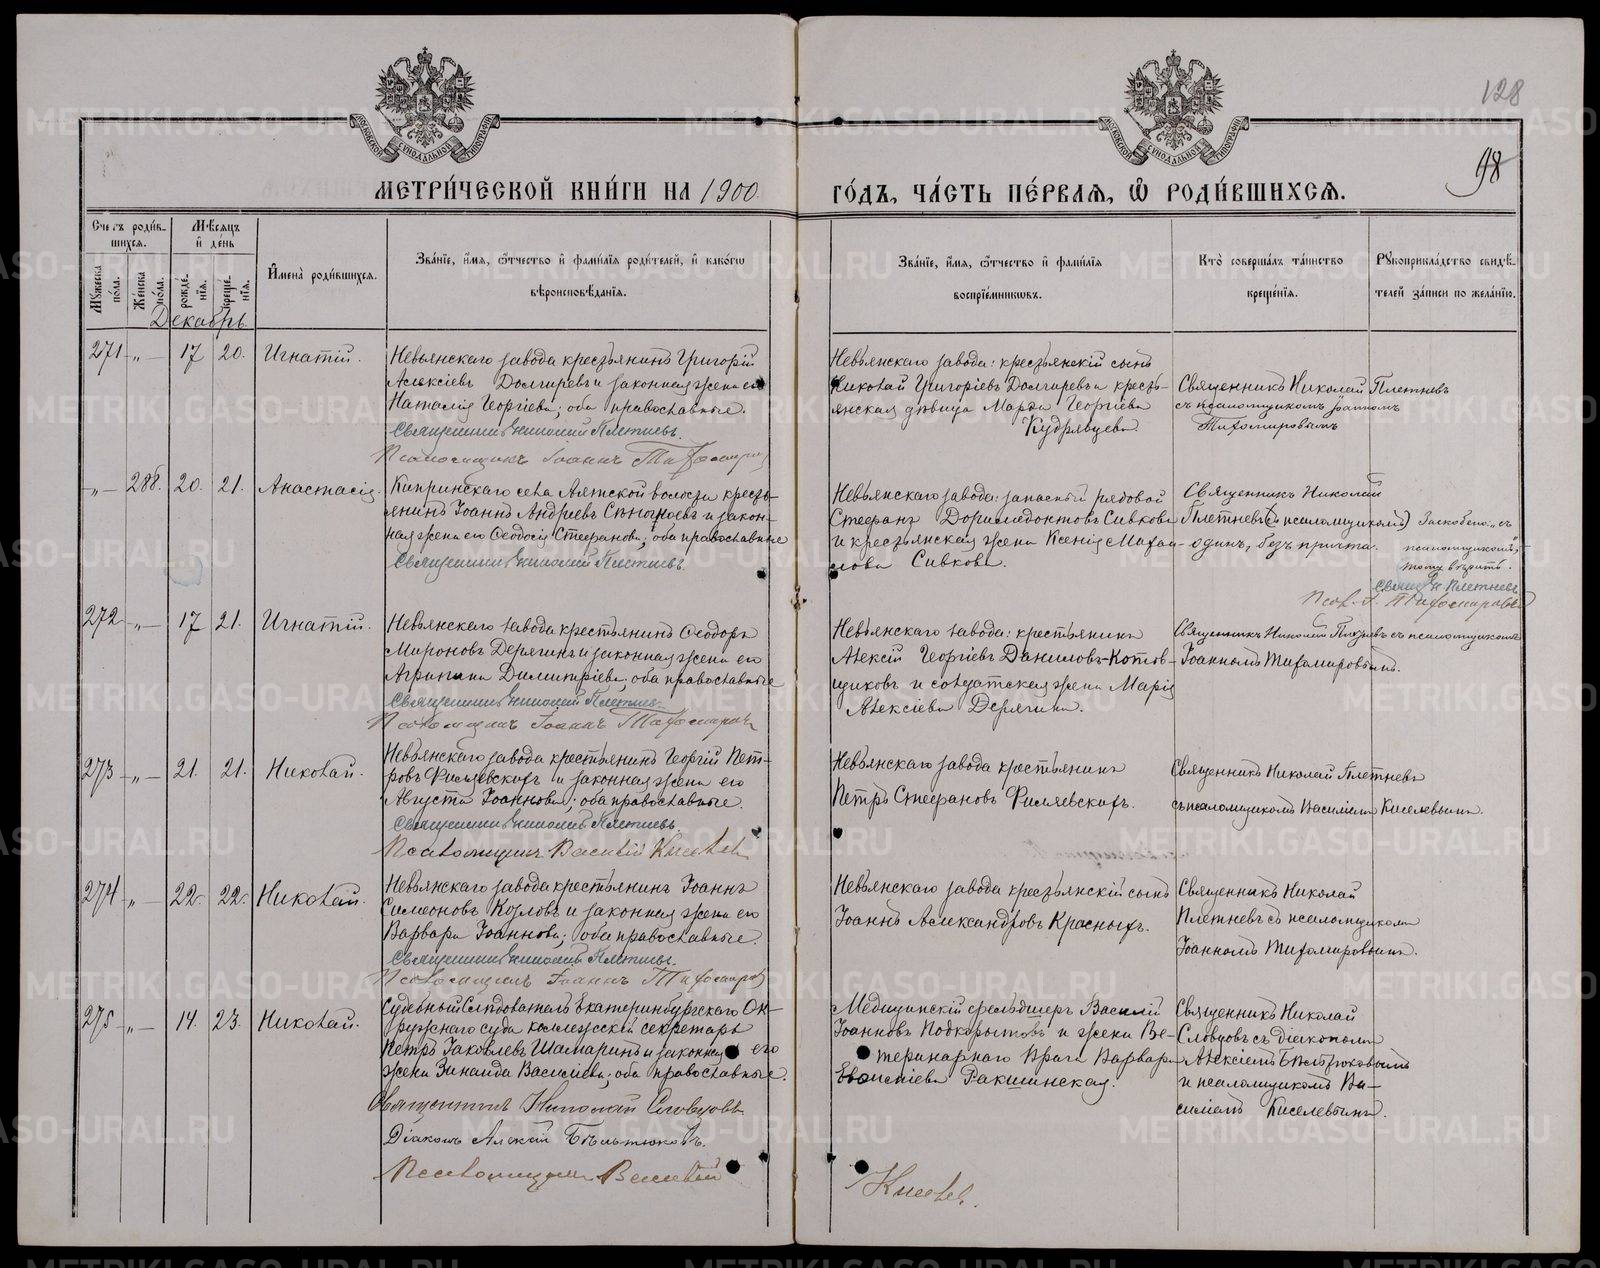 128
98
МЕТРИ́ЧЕСКОЙ КНИ́ГИ НА 1900 ГО́ДЪ, ЧА́СТЬ ПЕ́РВАЯ, Ѡ҆ РОДИ́ВШИХСЯ.
Счетъ роди́в-
шихся.
Мужеска по́ла.
Же́нска по́ла.
Мѣ́сяцъ и҆ де́нь
рожде́нїя.
креще́нїя.
И҆мена̀ роди́вшихся.
Зва́нїе, и҆́мя, ѻ҆́тчество и҆ фами́лїя роди́телей, и҆ како́гѡ
вѣроисповѣ́данїя.
Зва́нїе, и҆́мя, ѻ҆́тчество и҆ фами́лїя
воспрїе́мникѡвъ.
Кто̀ соверша́лъ та́инство
креще́нїя.
Рꙋкоприкла́дство свидѣ́-
телей за́писи по жела́нїю.
Декабрь.
271 -„- 17 20. Игнатій.
Невьянскаго завода крестьянинъ Григорій
Алексіевъ Долгиревъ и законная жена его
Наталія Георгіева; оба православные.
Священникъ Николай Плетневъ.
Псаломщикъ Іоаннъ Тихомировъ
Невьянскаго завода: крестьянскій сынъ
Николай Григоріевъ Долгиревъ и кресть-
янская дѣвица Марѳа Георгіева
Кудрявцева.
Священникъ Николай Плетневъ
съ псаломщикомъ Іоанномъ
Тихомировымъ
-„- 288. 20. 21. Анастасія.
Кипринскаго села Аятской волости кресть-
янинъ Іоаннъ Андреевъ и закон-
ная жена его Ѳеодосія Стефанова; оба православные
Священникъ Николай Плетневъ.
Невьянскаго завода: запасный рядовой
Стефанъ Доримедонтовъ Сивковъ
и крестьянская жена Ксенія Михаи-
лова Сивкова.
Священникъ Николай
Плетневъ (съ псаломщикомъ)
одинъ, безъ причта.
Заскоблено: „съ
псаломщикомъ“,
тому вѣрить.
Свящ. Н. Плетневъ
Псал. І. Тихомировъ
272 -„- 17 21. Игнатій.
Невьянскаго завода крестьянинъ Ѳеодоръ
Мироновъ Дерягинъ и законная жена его
Агрипина Димитріева, оба православные
Священникъ Николай Плетневъ.
Псаломщикъ Іоаннъ Тихомировъ
Невьянскаго завода: крестьянинъ
Алексій Георгіевъ Даниловъ-Котов-
щиковъ и солдатская жена Марія
Алексіева Дерягина.
Священникъ Николай Плетневъ съ псаломщикомъ
Іоанномъ Тихомировымъ.
273 -„- 21. 21. Николай.
Невьянскаго завода крестьянинъ Георгій Пет-
ровъ Филяевскихъ и законная жена его
Августа Іоаннова; оба православные.
Священникъ Николай Плетневъ.
Псаломщикъ Василій Киселевъ
Невьянскаго завода крестьянинъ
Петръ Стефановъ Филяевскихъ.
Священникъ Николай Плетневъ
съ псаломщикомъ Василіемъ Киселевымъ.
274 „- 22. 22. Николай.
Невьянскаго завода крестьянинъ Іоаннъ
Симеоновъ Козловъ и законная жена его
Варвара Іоаннова; оба православные.
Священникъ Николай Плетневъ.
Псаломщикъ Іоаннъ Тихомировъ
Невьянскаго завода крестьянскій сынъ
Іоаннъ Александровъ Красныхъ.
Священникъ Николай
Плетневъ съ псаломщикомъ
Іоанномъ Тихомировымъ.
275 -„- 14. 23. Николай.
Судебный Слѣдователь Екатеринбургскаго Ок-
ружнаго суда коллежскій секретарь
Петръ Іаковлевъ Шамаринъ и законная его
жена Зинаида Василіева; оба православные.
Священникъ Николай Словцовъ
Діаконъ Алексій Бѣльтюковъ.
Псаломщикъ Василій
Медицинскій фельдшеръ Василій
Іоанновъ Подкорытовъ и жена Ве-
теринарнаго Врача Варвара
Ракшинская.
Киселевъ.
Священникъ Николай
Словцовъ съ діакономъ
Алексіемъ Бѣльтюковымъ
и псаломщикомъ Ва-
силіемъ Киселевымъ.
METRIKI.GASO-URAL.RU